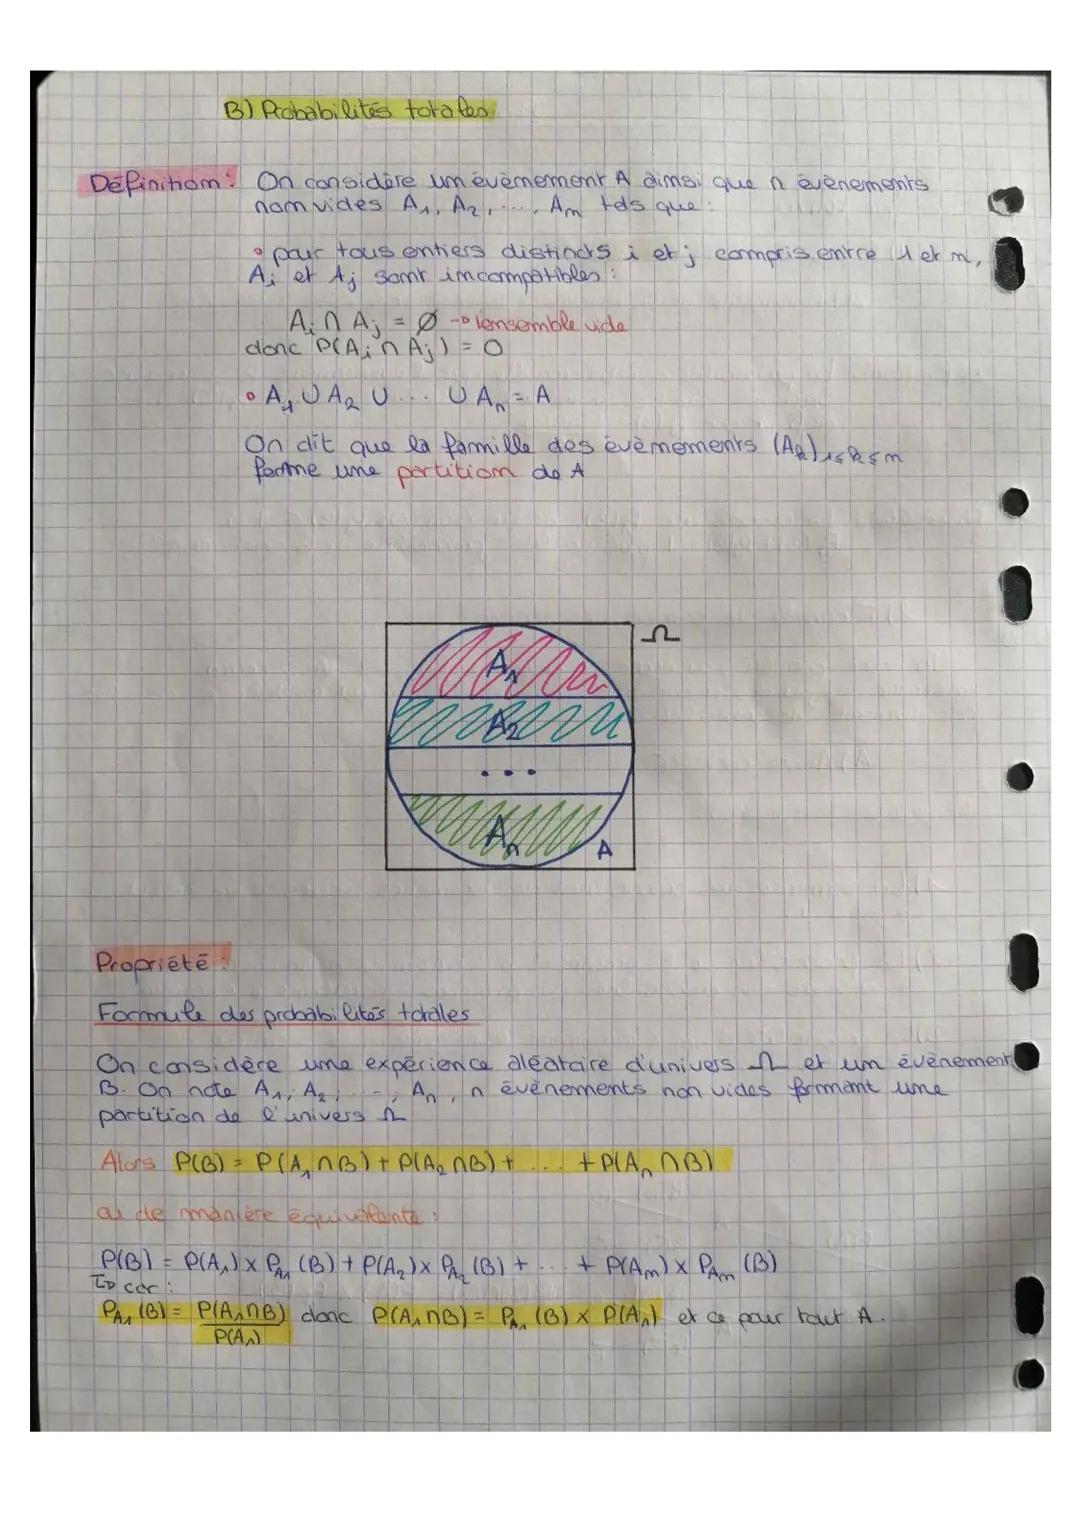 B) Probabilités totales
Définition : On considère un évènement A ainsi que n évènements
non vides A₁, A₂, ..., Aₙ tels que :
• pour tous entiers distincts i et j compris entre 1 et n,
Aᵢ et Aⱼ sont incompatibles :
Aᵢ ∩ Aⱼ = Ø → l'ensemble vide
donc P(Aᵢ ∩ Aⱼ) = 0
• A₁ ∪ A₂ ∪ ... ∪ Aₙ = A
On dit que la famille des évènements (Aₖ)₁≤ₖ≤ₙ
forme une partition de A
Ω
A₁
A₂
...
Aₙ
A
Propriété :
Formule des probabilités totales
On considère une expérience aléatoire d'univers Ω et un évènement
B. On note A₁, A₂, ..., Aₙ, n évènements non vides formant une
partition de l'univers Ω
Alors P(B) = P(A₁ ∩ B) + P(A₂ ∩ B) + ... + P(Aₙ ∩ B)
ou de manière équivalente :
P(B) = P(A₁) × P_A₁(B) + P(A₂) × P_A₂(B) + ... + P(Aₙ) × P_Aₙ(B)
↳ car :
P_A₁(B) = P(A₁∩B)/P(A₁) donc P(A₁∩B) = P_A₁(B) × P(A₁) et ce pour tout A.